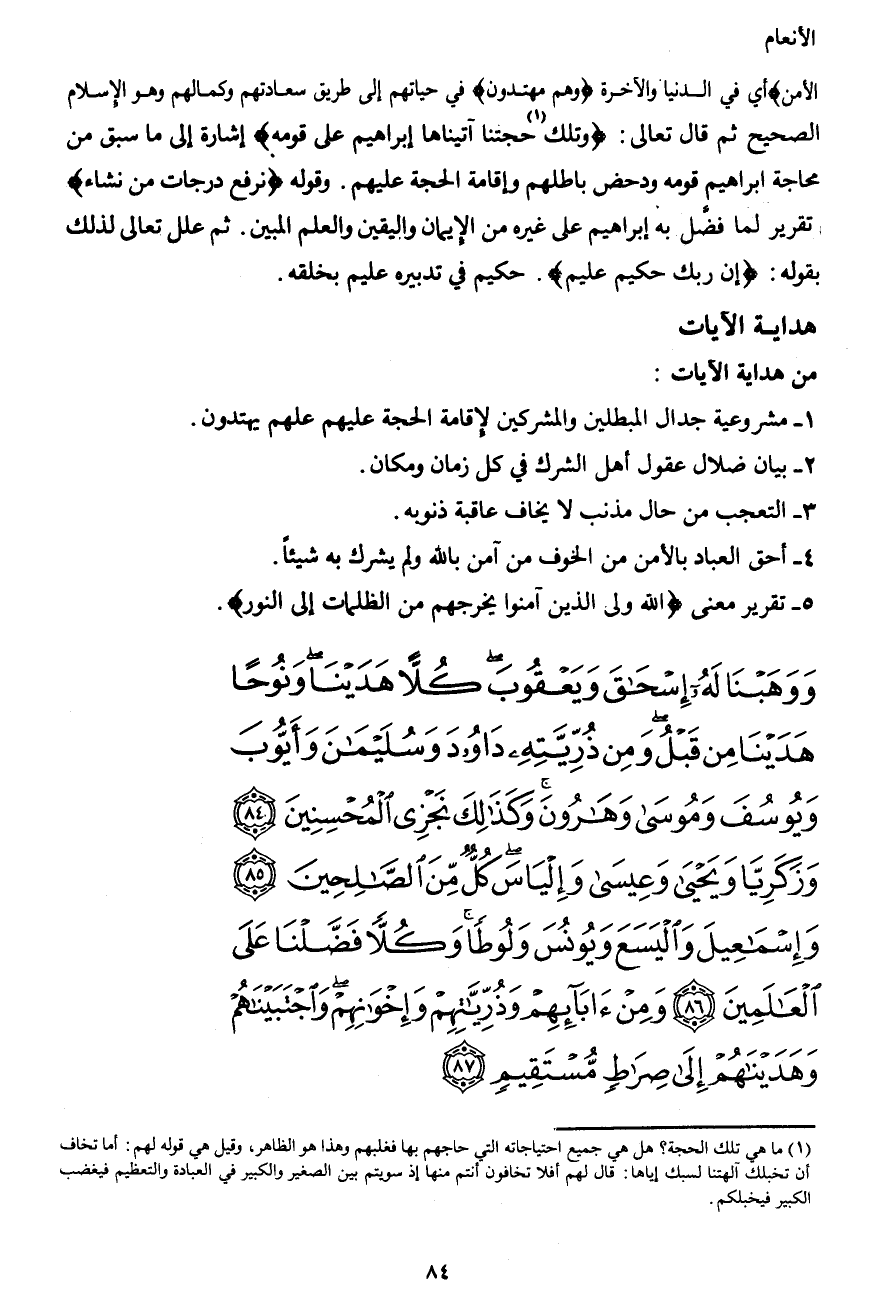 الأنعام
الأمن﴾أي في الـدنيا والآخـرة ﴿وهم مهتـدون﴾ في حياتهم إلى طريق سعـادتهم وكمـالهم وهـو الإسـلام
الصحيح ثم قال تعالى: ﴿وتلك (١) حجتنا آتيناها إبراهيم على قومه﴾ إشارة إلى ما سبق من
محاجة ابراهيم قومه ودحض باطلهم وإقامة الحجة عليهم. وقوله ﴿نرفع درجات من نشاء﴾
تقرير لما فضَّل به إبراهيم على غيره من الإيمان واليقين والعلم المبين. ثم علل تعالى لذلك
بقوله: ﴿إن ربك حكيم عليم﴾. حكيم في تدبيره عليم بخلقه.
هدايـة الآيات
من هداية الآيات :
١ـ مشروعية جدال المبطلين والمشركين لإقامة الحجة عليهم علهم يهتدون.
٢ـ بيان ضلال عقول أهل الشرك في كل زمان ومكان.
٣ـ التعجب من حال مذنب لا يخاف عاقبة ذنوبه.
٤ـ أحق العباد بالأمن من الخوف من آمن بالله ولم يشرك به شيئاً.
٥ـ تقرير معنى ﴿الله ولى الذين آمنوا يخرجهم من الظلمات إلى النور﴾.
وَوَهَبْنَا لَهُۥٓ إِسْحَـٰقَ وَيَعْقُوبَ ۖ كُلًّا هَدَيْنَا ۖ وَنُوحًا
هَدَيْنَا مِن قَبْلُ ۖ وَمِن ذُرِّيَّتِهِۦ دَاوُۥدَ وَسُلَيْمَـٰنَ وَأَيُّوبَ
وَيُوسُفَ وَمُوسَىٰ وَهَـٰرُونَ ۚ وَكَذَٰلِكَ نَجْزِى ٱلْمُحْسِنِينَ ٨٤
وَزَكَرِيَّا وَيَحْيَىٰ وَعِيسَىٰ وَإِلْيَاسَ ۖ كُلٌّ مِّنَ ٱلصَّـٰلِحِينَ ٨٥
وَإِسْمَـٰعِيلَ وَٱلْيَسَعَ وَيُونُسَ وَلُوطًا ۚ وَكُلًّا فَضَّلْنَا عَلَى
ٱلْعَـٰلَمِينَ ٨٦ وَمِنْ ءَابَآئِهِمْ وَذُرِّيَّـٰتِهِمْ وَإِخْوَٰنِهِمْ ۖ وَٱجْتَبَيْنَـٰهُمْ
وَهَدَيْنَـٰهُمْ إِلَىٰ صِرَٰطٍ مُّسْتَقِيمٍ ٨٧
(١) ما هي تلك الحجة؟ هل هي جميع احتياجاته التي حاجهم بها فغلبهم وهذا هو الظاهر، وقيل هي قوله لهم: أما تخاف
أن تخبلك آلهتنا لسبك إياها: قال لهم أفلا تخافون أنتم منها إذ سويتم بين الصغير والكبير في العبادة والتعظيم فيغضب
الكبير فيخبلكم.
٨٤